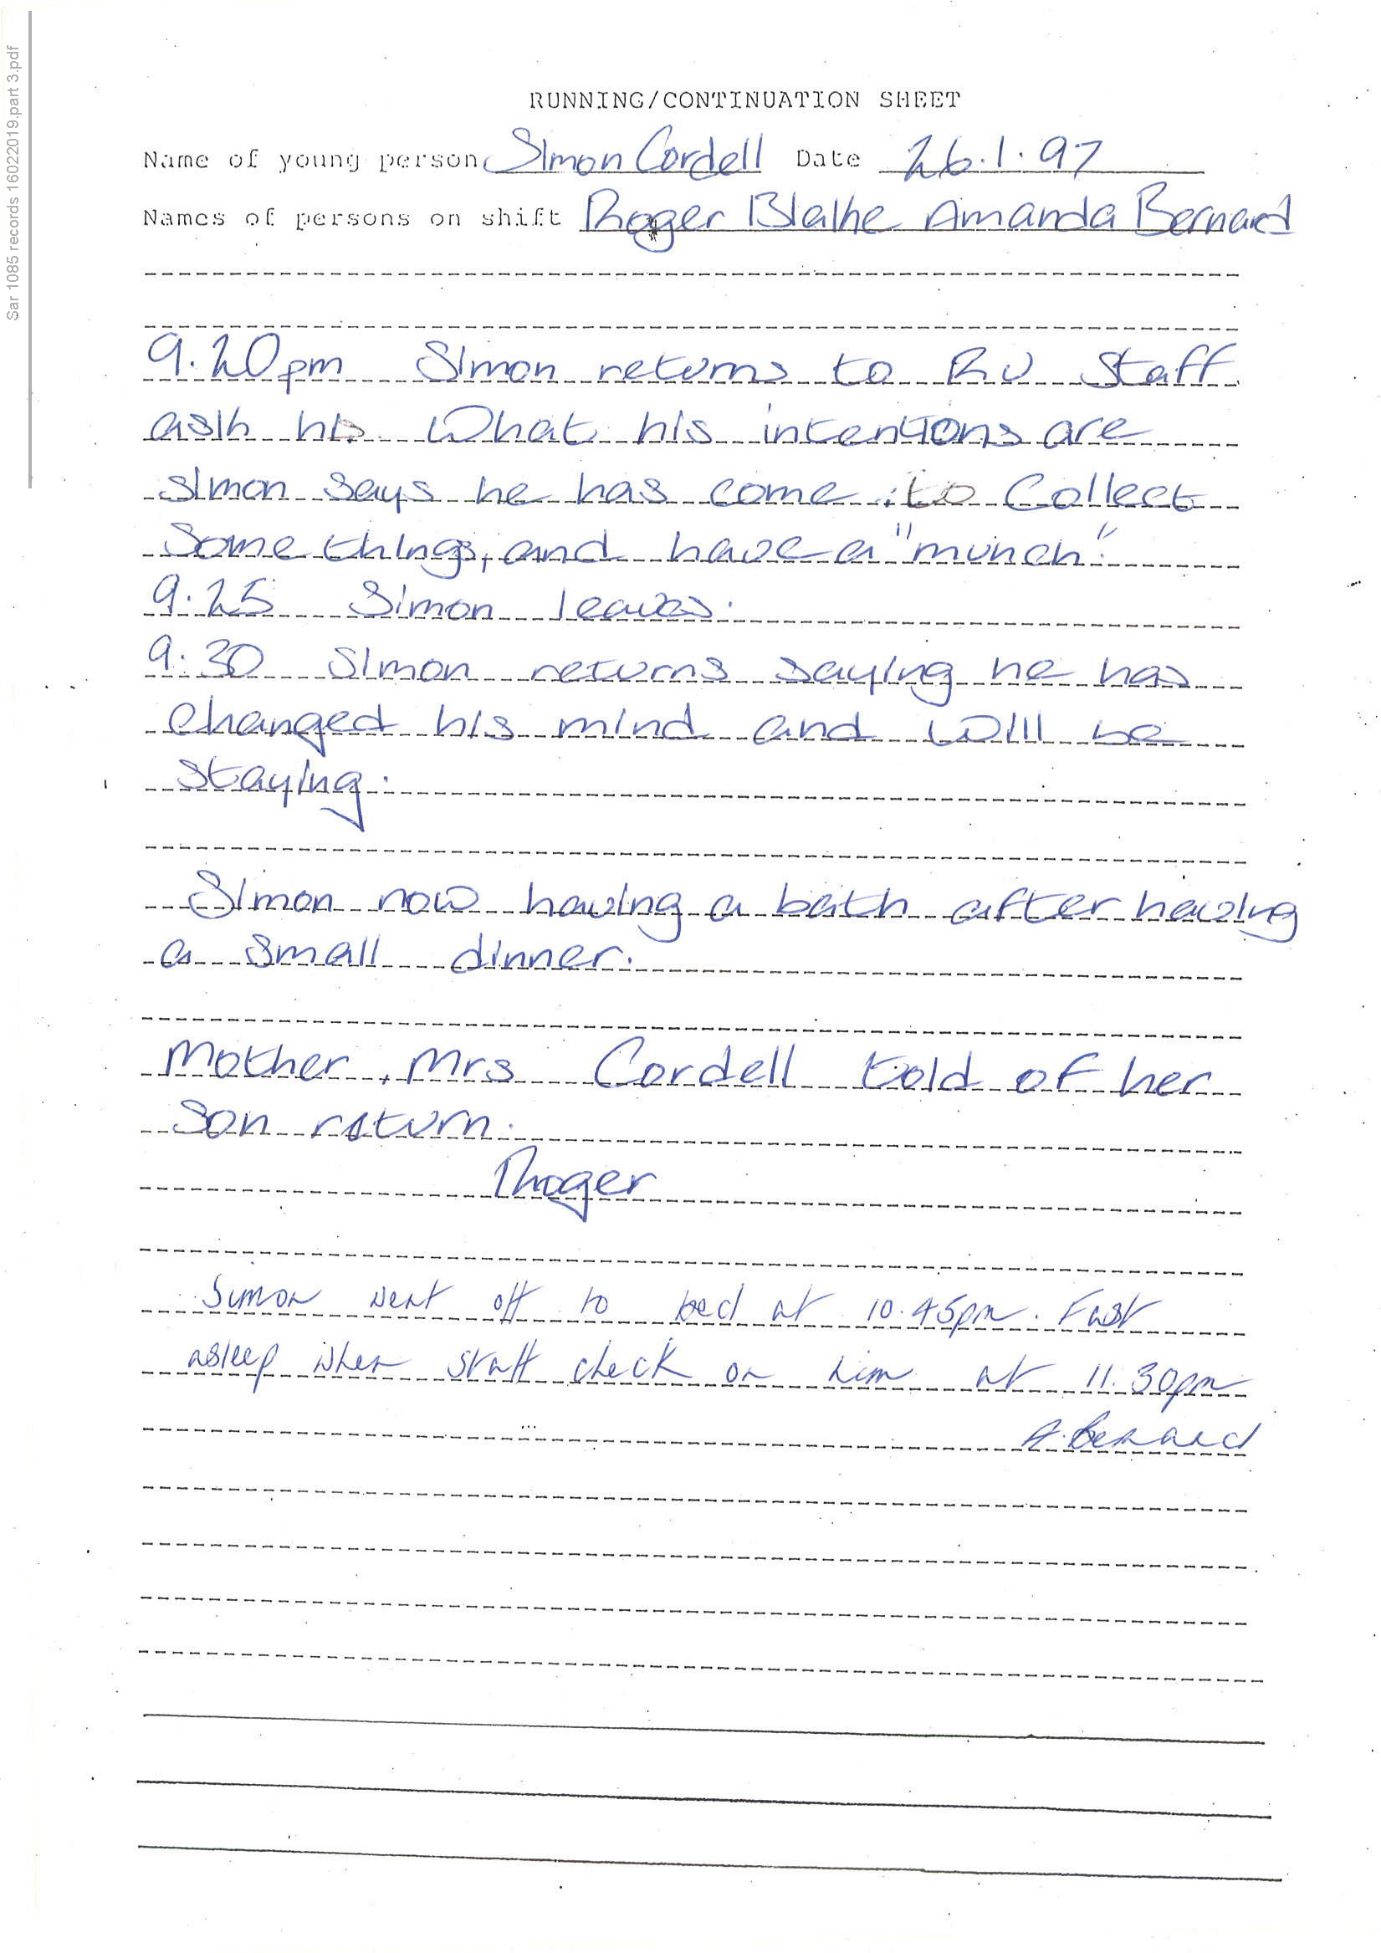 Sar 1085 records 16022019.part 3.pdf
RUNNING/CONTINUATION SHEET
Name of young person Simon Cordell Date 26.1.97
Names of persons on shift Roger Blake Amanda Bernard
9.20pm Simon returns to RU Staff
ask his What his intentions are
simon says he has come to Collect
Some things, and have a "munch".
9.25 Simon leaves.
9:30 Simon returns saying he has
changed his mind and will be
staying.
Simon now having a bath after having
a small dinner.
Mother, Mrs Cordell told of her
son return.
Roger
Simon went off to bed at 10.45pm. Fast
asleep when staff check on him at 11.30pm
A. Bernard